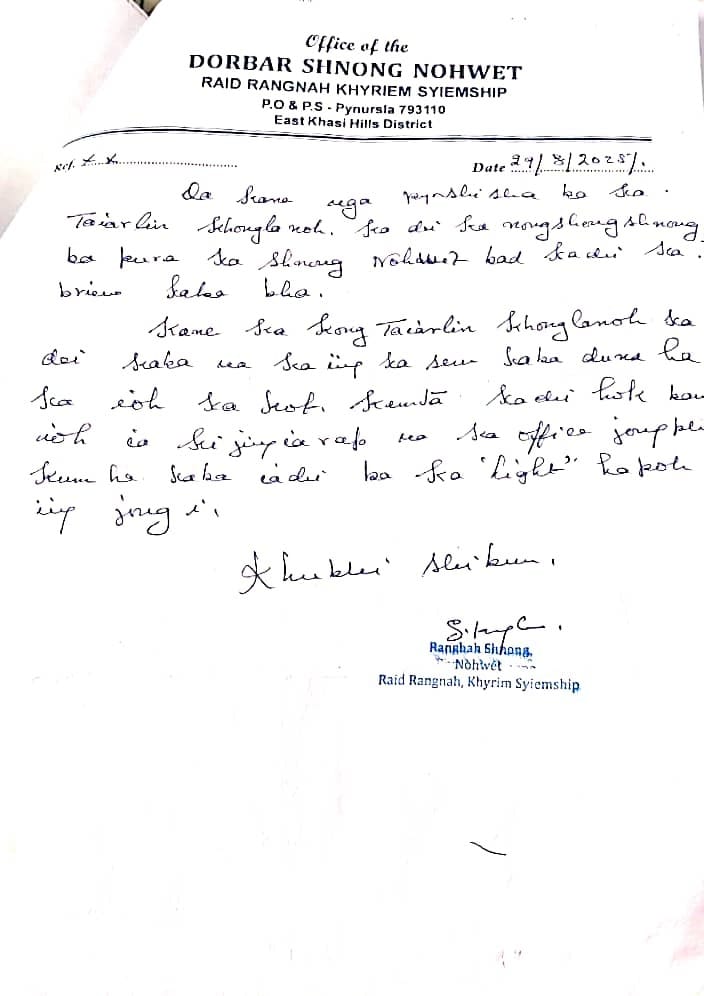 Office of the
DORBAR SHNONG NOHWET
RAID RANGNAH KHYRIEM SYIEMSHIP
P.O & P.S - Pynursla 793110
East Khasi Hills District
Ref. x x
Date 29/8/2025/.
Da kane nga pynshisha ba ka
Taiarlin Khonglanoh. ka dei ka nongshongshnong
ba pura ka shnong Nohwet bad kadei ka
briew kaba bha.
Kane ka kong Taiarlin Khonglanoh ka
dei kaba na ka iing ka sem kaba duna ha
ka ioh ka kot. Kumta kadei hok ban
ioh ia ki jingiarap na ka office jong phi
kum ha kaba iadei ba ka "light" hapoh
iing jong i.
Khublei shibun.
Rangbah Shnong,
Nohwet
Raid Rangnah, Khyrim Syiemship